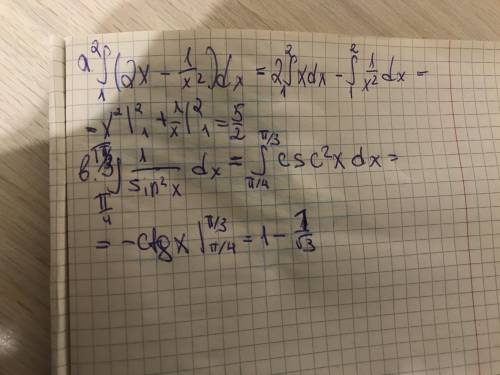 a ∫₁² (2x − 1/x²) dx = 2∫₁² x dx − ∫₁² 1/x² dx =
= x² |₁² + 1/x |₁² = 5/2
в. ∫_{π/4}^{π/3} 1/sin²x dx = ∫_{π/4}^{π/3} csc²x dx =
= −ctgx |_{π/4}^{π/3} = 1 − 1/√3